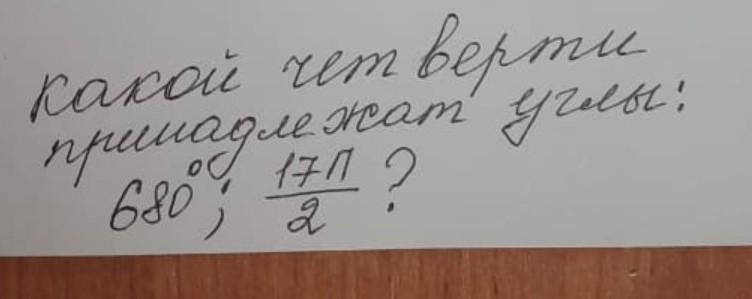 какой четверти
принадлежат углы:
680°; 17П/2 ?